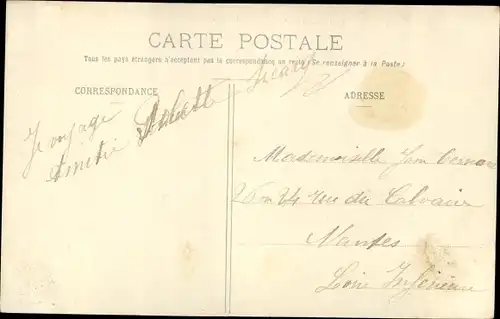 CARTE POSTALE
Tous les pays étrangers n'acceptent pas la correspondance au recto (Se renseigner à la Poste)
CORRESPONDANCE
ADRESSE
Je voyage
Amitié
Mademoiselle
rue du Calvaire
Nantes
Loire Inférieure